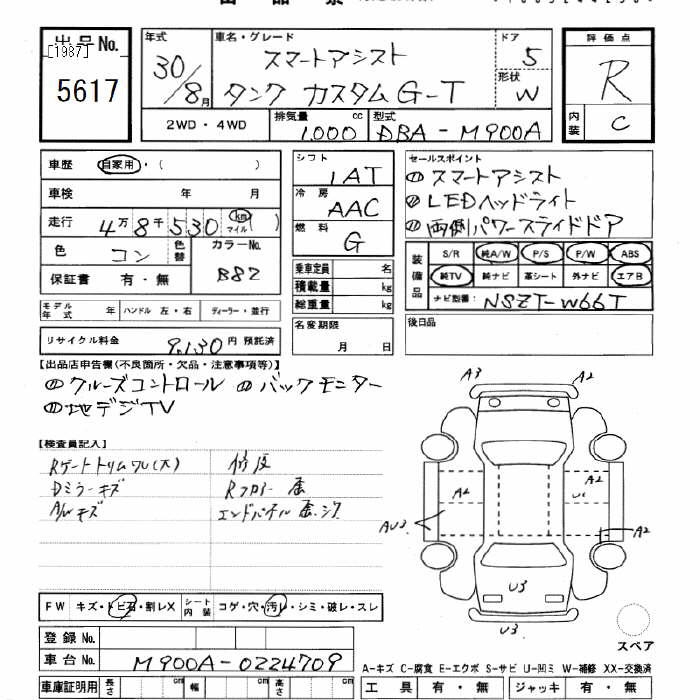 出品No.
[1987]
5617
年式
30/8月
車名・グレード
スマートアシスト
タンク カスタム G-T
ドア
5
形状
W
評価点
R
内装
C
2WD・4WD
排気量
1,000 cc
型式
DBA-M900A
車歴 自家用・( )
車検 年 月
走行 4万8千530 km マイル ( )
色 コン 色替
カラーNo.
B82
保証書 有・無
モデル年式 年 ハンドル 左・右 ディーラー・並行
リサイクル料金 9,130 円 預託済
シフト
1AT
冷房
AAC
燃料
G
乗車定員 名
積載量 kg
総重量 kg
名変期限
月 日
セールスポイント
スマートアシスト
LEDヘッドライト
両側パワースライドドア
装備品
S/R 純A/W P/S P/W ABS
純TV 純ナビ 革シート 外ナビ エアB
ナビ型番: NSZT-W66T
後日品
【出品店申告欄(不良箇所・欠品・注意事項等)】
クルーズコントロール バックモニター
地デジTV
【検査員記入】
Rゲートトリムワレ(大) 修復
Dミラーキズ Rフロアー 歪
A/Wキズ エンドパネル 歪.
A3
A2
A2
A2
U1
AU3
A2
U3
U3
スペア
FW キズ・トビ石・割レX シート内装 コゲ・穴・汚レ・シミ・破レ・スレ
登録No.
車台No. M900A-0224709
車庫証明用 長さ cm 幅 cm 高さ cm
A-キズ C-腐食 E-エクボ S-サビ U-凹ミ W-補修 XX-交換済
工具 有・無 ジャッキ 有・無